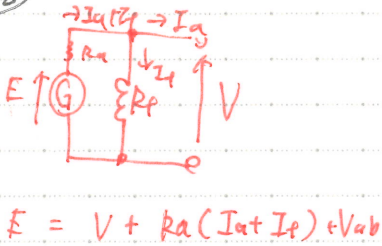 →Ia+If →Ia
Ra
↓If
E
G
Rf
V
E = V + Ra(Ia+If)+Vab